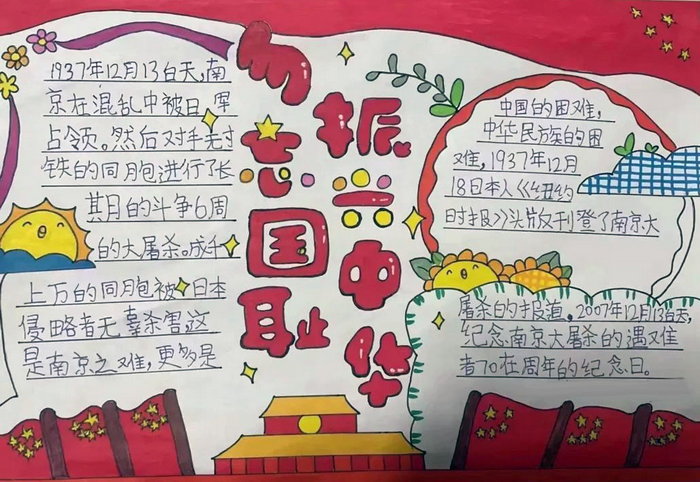 勿忘国耻
振兴中华
1937年12月13白天,南
京在混乱中被日军
占领。然后对手无寸
铁的同胞进行了长
期的斗争6周
的大屠杀。成千
上万的同胞被日本
侵略者无辜杀害,这
是南京之难,更多是
中国的困难,
中华民族的困
难,1937年12月
18日本人《纽约
时报》头版刊登了南京大
屠杀的报道。2007年12月13白天,
纪念南京大屠杀的遇难
者70在周年的纪念日。